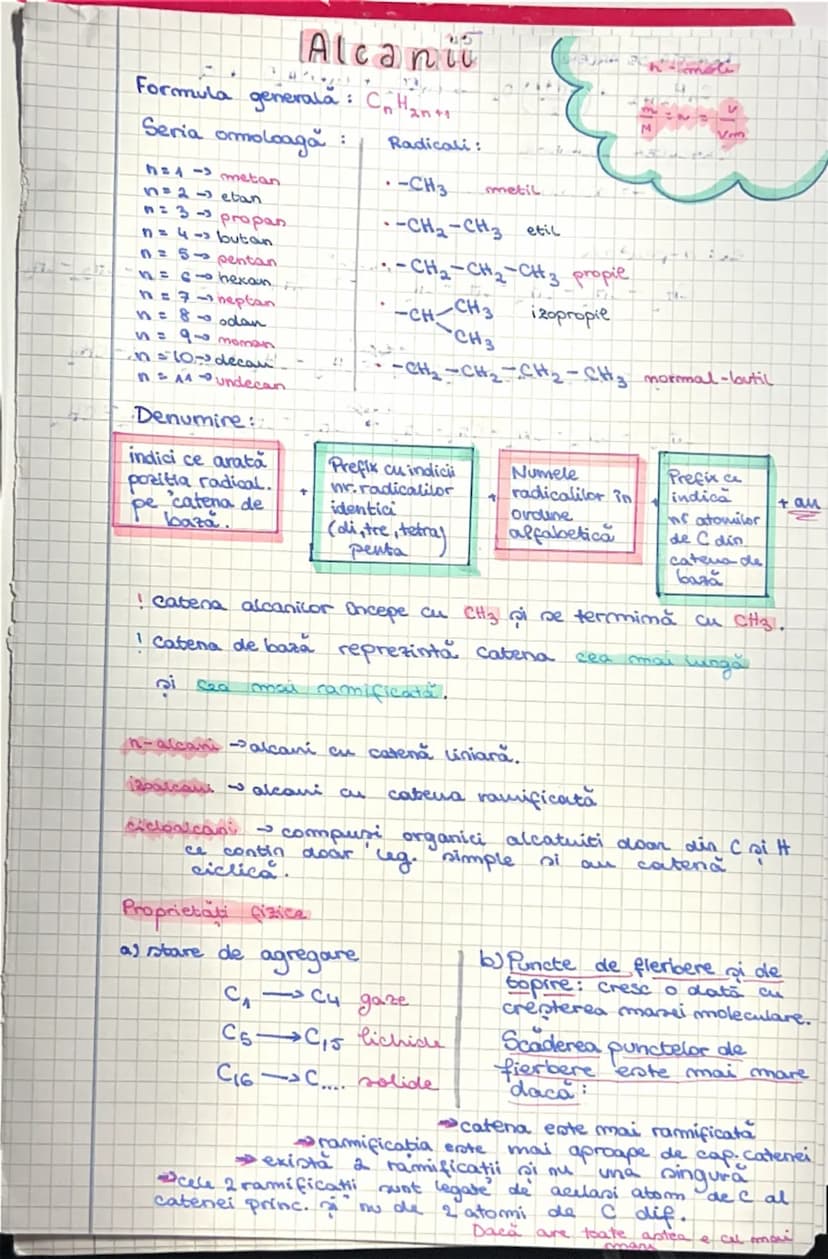 Alcanii
n - moli
m/M = n = V/Vm
Formula generală : CnH2n+1
Seria omoloagă :
n = 1 -> metan
n = 2 -> etan
n = 3 -> propan
n = 4 -> butan
n = 5 -> pentan
n = 6 -> hexan
n = 7 -> heptan
n = 8 -> odan
n = 9 -> nonan
n = 10 -> decan
n = 11 -> undecan
Radicali :
· -CH3 metil
· -CH2-CH3 etil
· -CH2-CH2-CH3 propil
· -CH-CH3 izopropil
CH3
· -CH2-CH2-CH2-CH3 normal-butil
Denumire :
indici ce arată
poziția radical.
pe catena de
bază.
+
Prefix cu indicii
nr. radicalilor
identici
(di, tre, tetra)
penta
+
Numele
radicalilor în
ordine
alfabetică
+
Prefix ce
indică
nr atomilor
de C din
catena de
bază
+ an
! Catena alcanilor începe cu CH3 și se termină cu CH3.
! Catena de bază reprezintă catena cea mai lungă
și cea mai ramificată.
n-alcani -> alcani cu catenă liniară.
izoalcani -> alcani cu catena ramificată
cicloalcani -> compuși organici alcatuiti doar din C și H
ce contin doar leg. simple si au catenă
ciclică.
Proprietăți fizice
a) stare de agregare
C1 -> C4 gaze
C5 -> C15 lichide
C16 -> C.... solide
b) Puncte de fierbere și de
topire : cresc o dată cu
creșterea masei moleculare.
Scăderea punctelor de
fierbere este mai mare
dacă :
-> catena este mai ramificată
-> ramificația este mai aproape de cap. catenei
-> există 2 ramificații și nu una singură
-> cele 2 ramificatii sunt legate de acelasi atom de C al
catenei princ. și nu de 2 atomi de C dif.
Dacă are toate astea e cel mai
mare